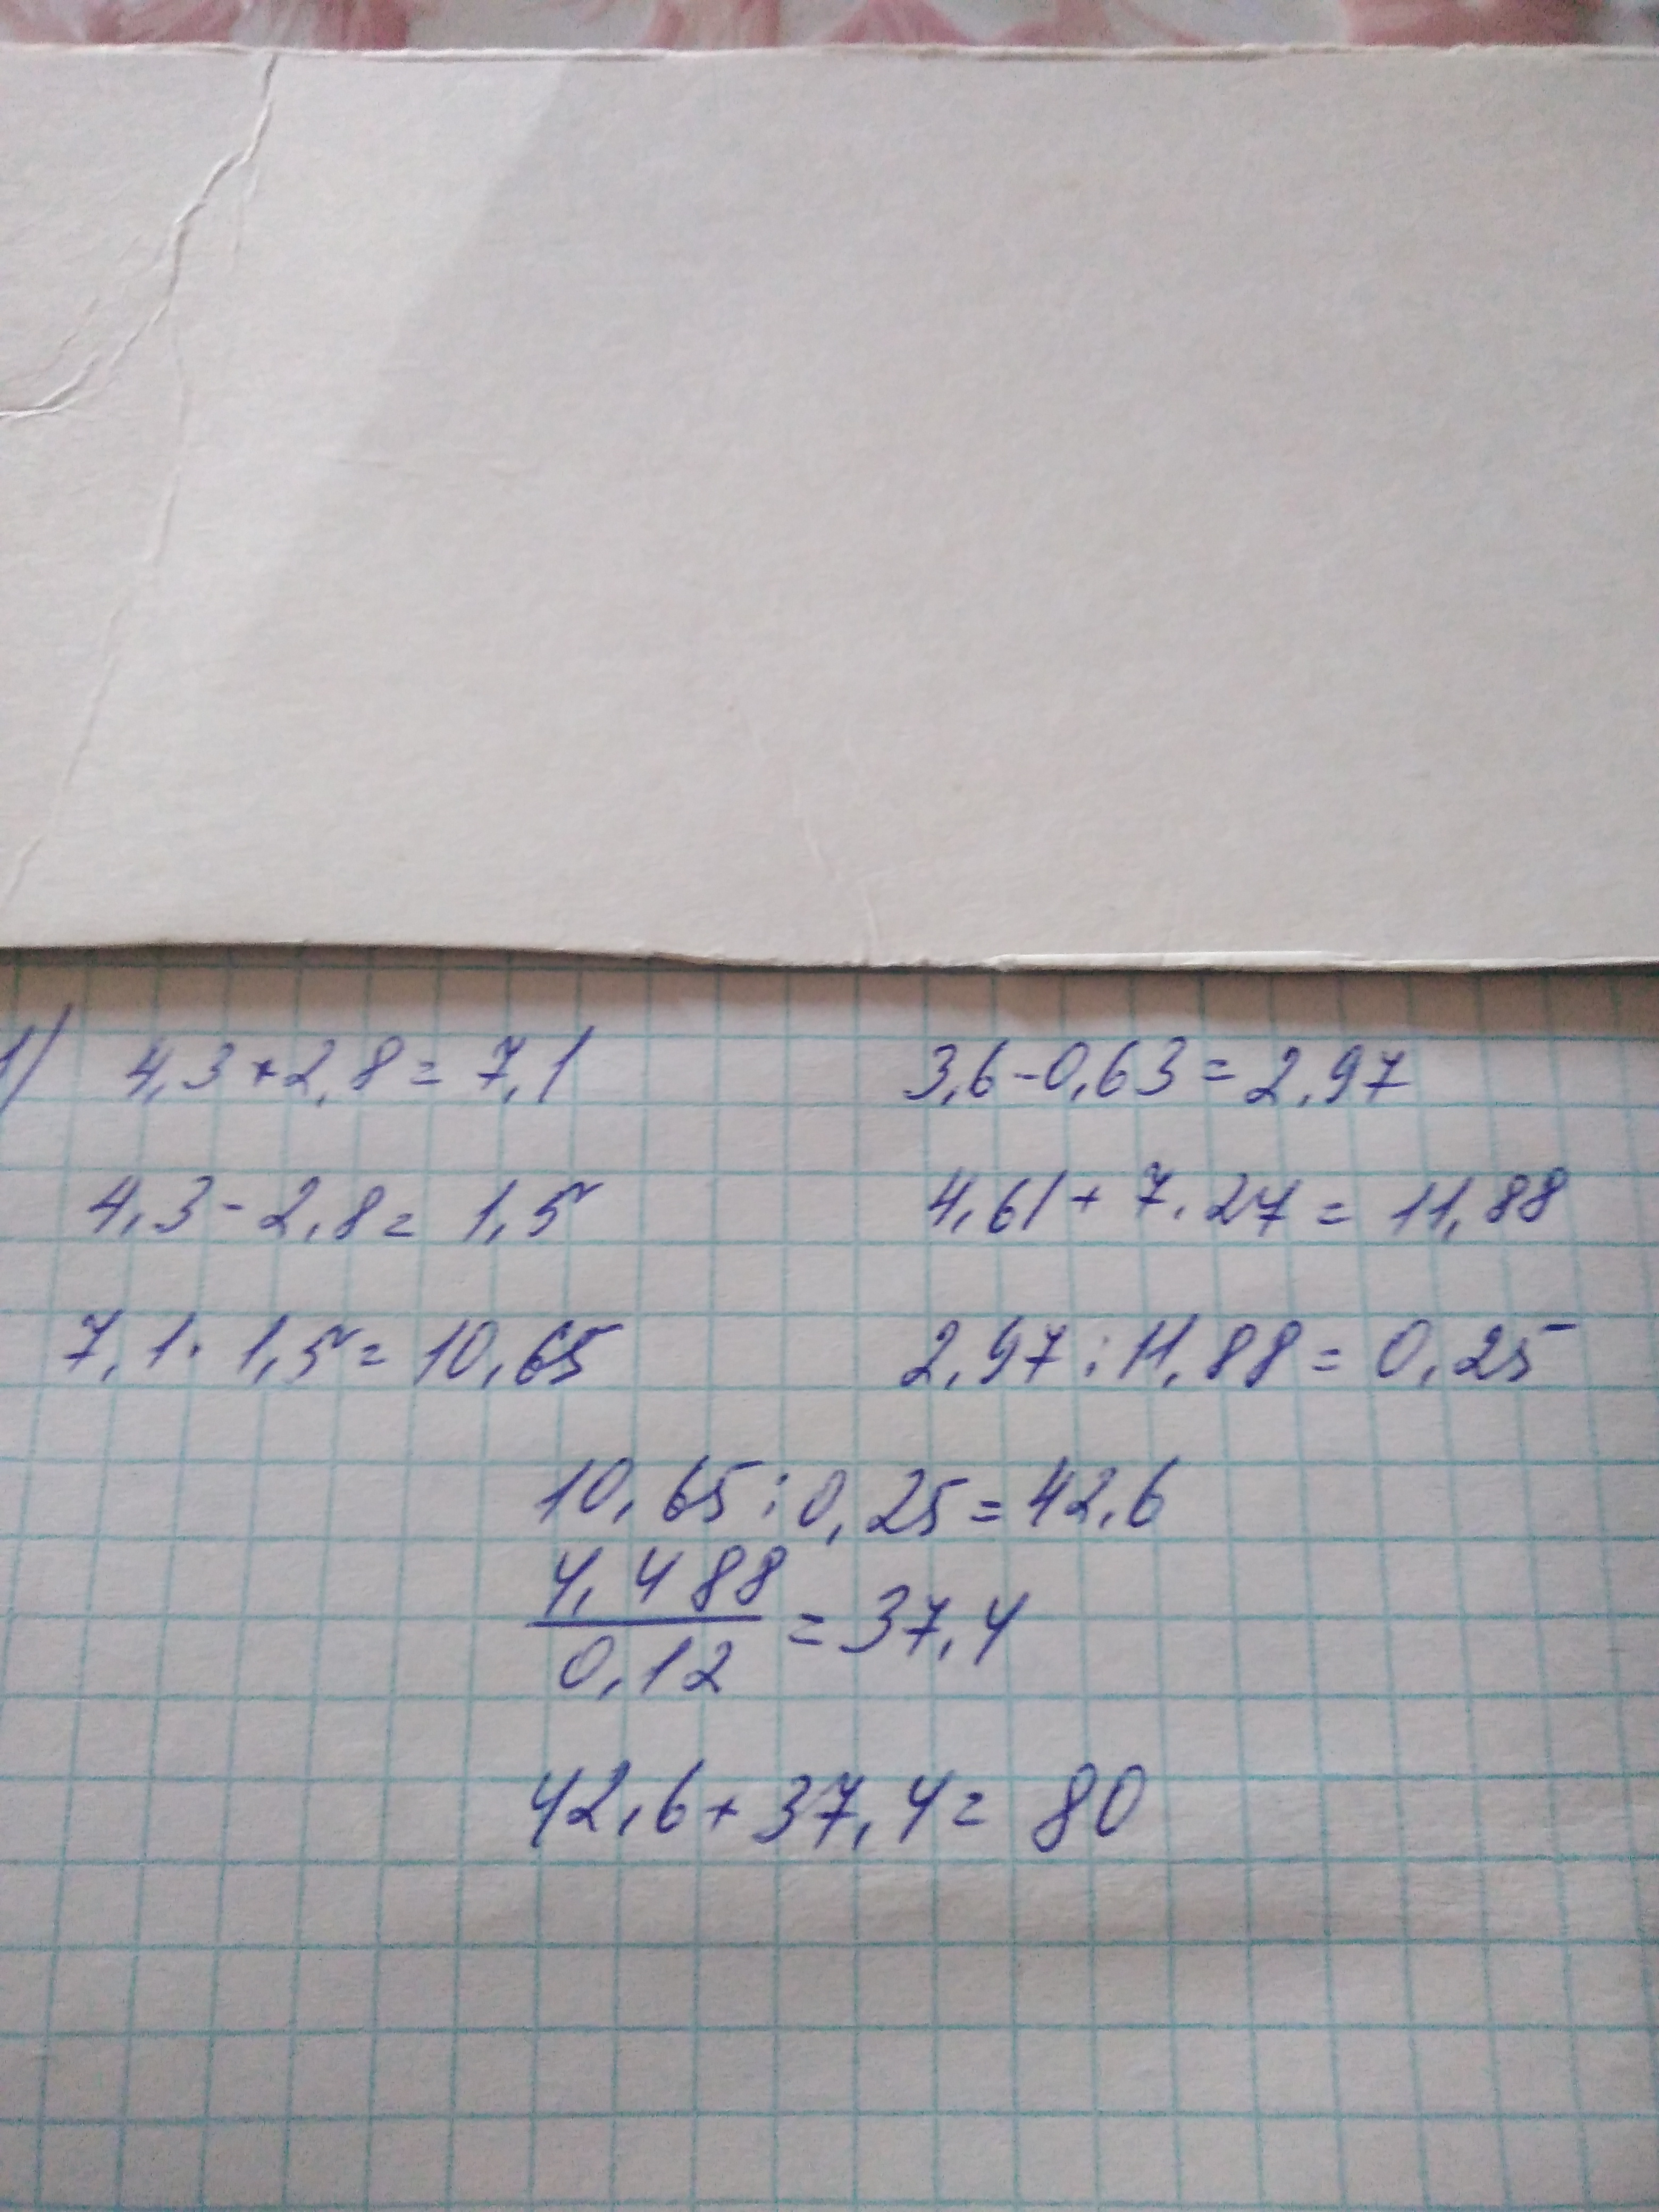 1) 4,3+2,8=7,1
3,6-0,63=2,97
4,3-2,8=1,5
4,61+7,27=11,88
7,1·1,5=10,65
2,97:11,88=0,25
10,65:0,25=42,6
4,488
0,12
=37,4
42,6+37,4=80